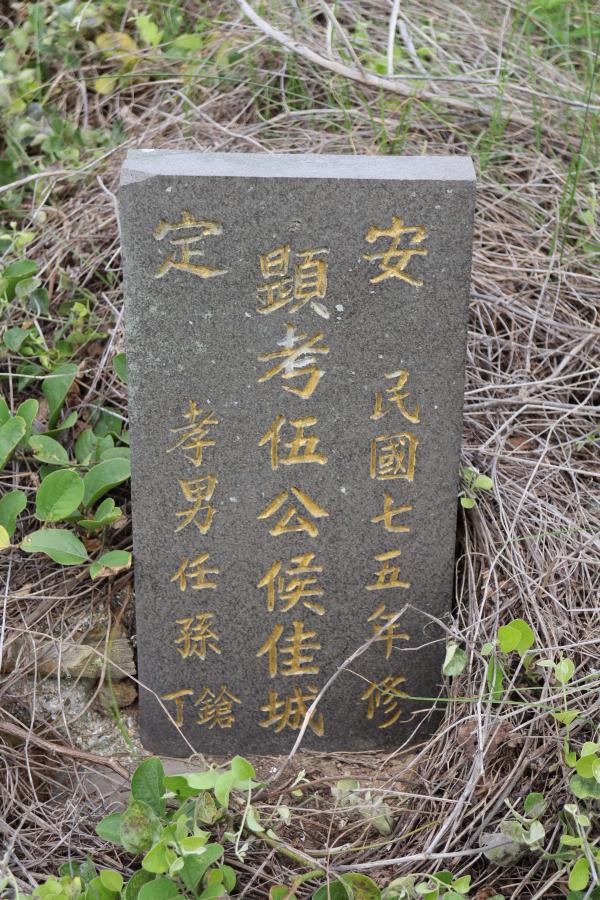 安定
民國七五年修
顯考伍公候佳城
孝男任孫鎗丁